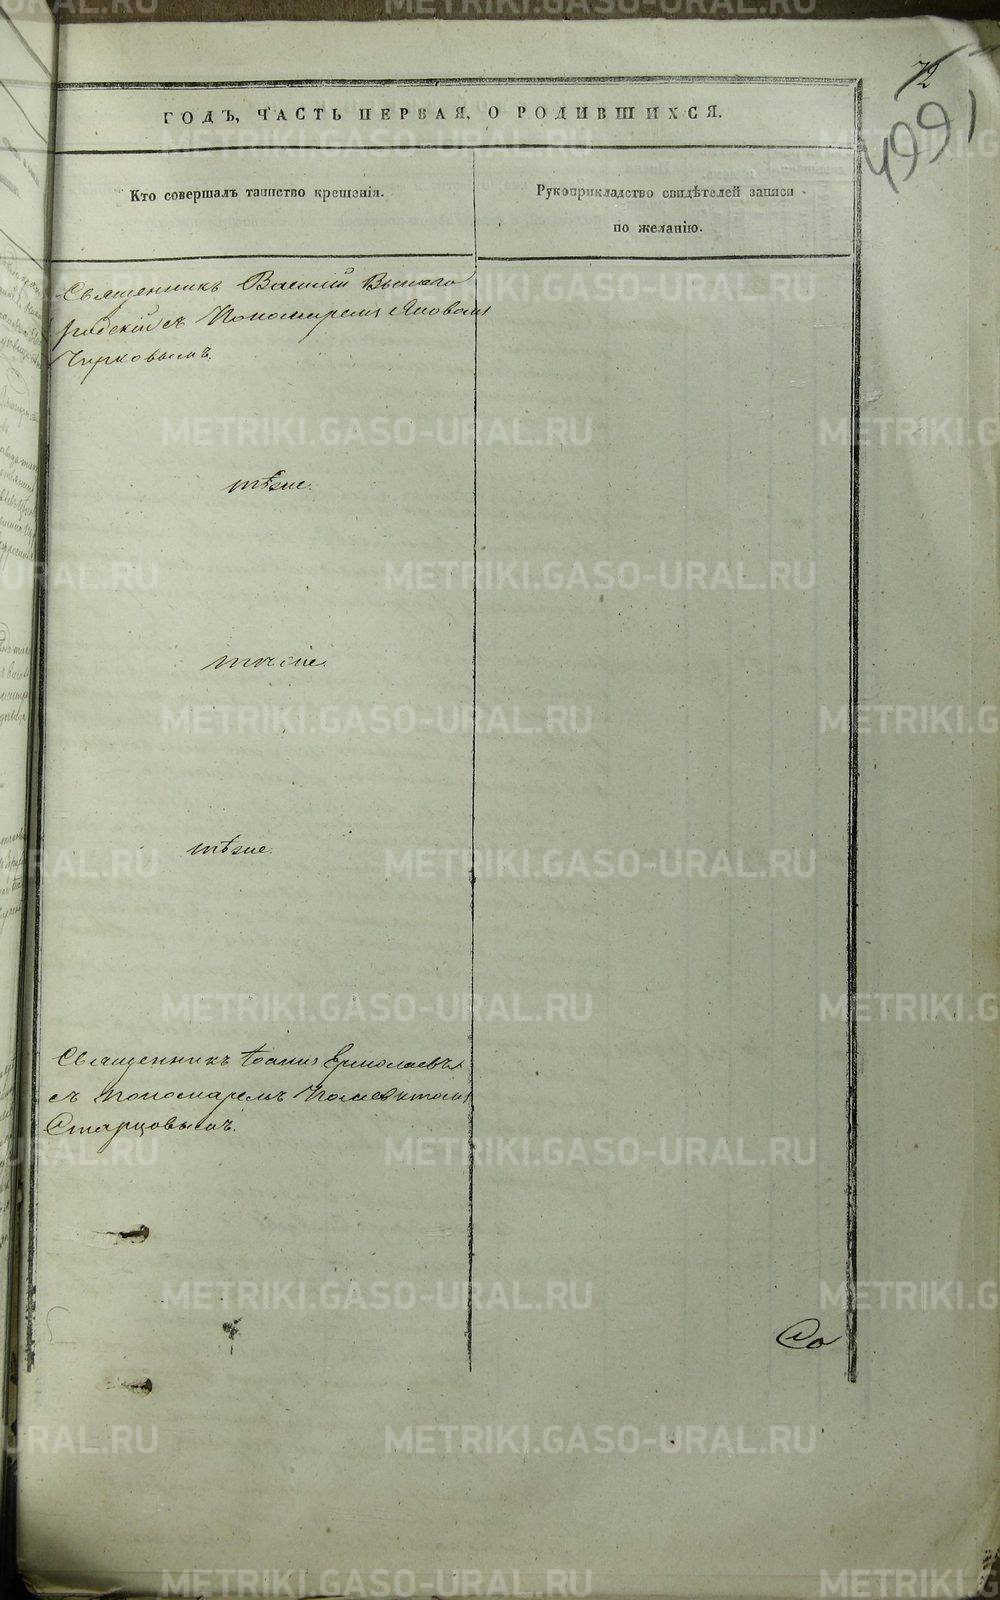 72
4991
ГОДЪ, ЧАСТЬ ПЕРВАЯ, О РОДИВШИХСЯ.
Кто совершалъ таинство крещенія.
Рукоприкладство свидѣтелей записи
по желанію.
Священникъ Василій Высого
родскій съ Пономаремъ Яковомъ
Чирковымъ.
тѣже.
тѣже.
тѣже.
Священникъ Іоаннъ Ермолаевъ
съ пономаремъ Поліевктомъ
Старцовымъ.
METRIKI.GASO-URAL.RU